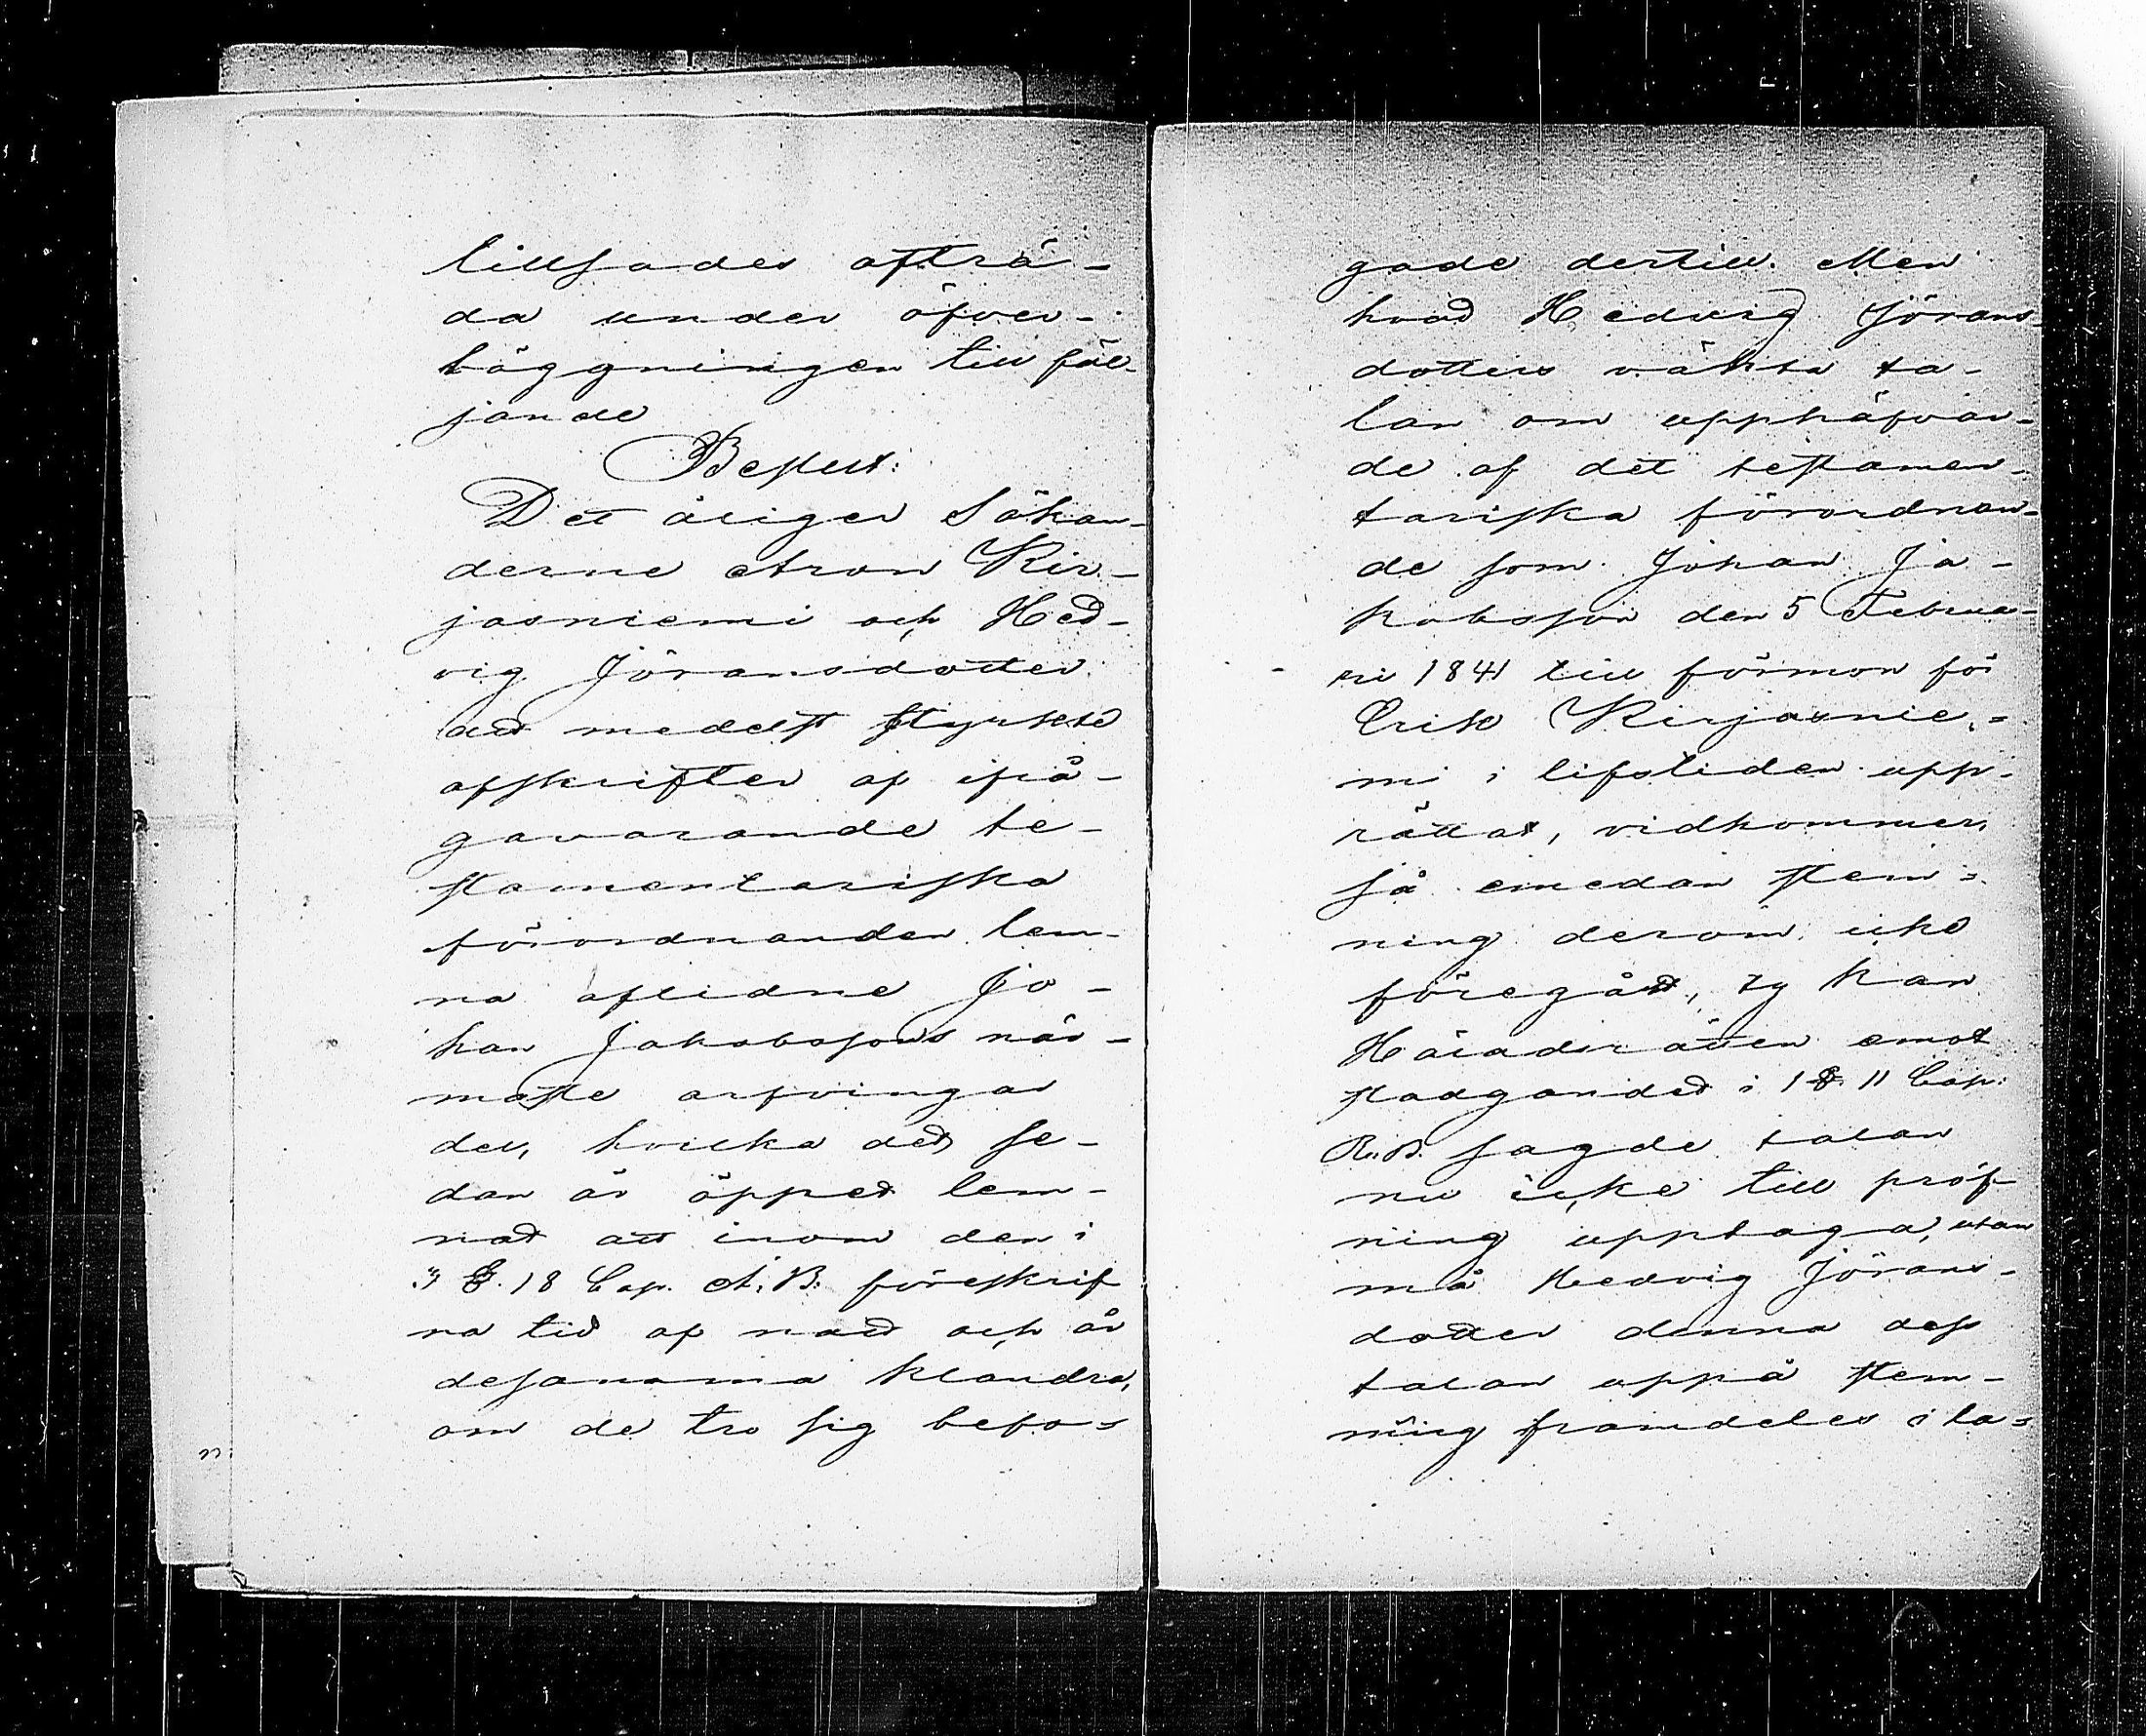 tillsades afträ-
da under öfver-
läggningen till föl-
jande
Beslut:
Det åligger Sökan-
derne Aron Kir-
jasniemi och Hed-
vig Jöransdotter
att medelst styrkte
afskrifter af ifrå-
gavarande te-
stamentariska
förordnanden lem-
na aflidne Jo-
han Jakobssons när-
maste arfvingar
del, hvilka det se-
dan är öppet lem-
nadt att inom den i
3 §. 18 Cap. Ä. B. föreskrif
na tid af natt och år
desamma klandra,
om de tro sig befo-
gade dertill. Men
hvad Hedvig Jörans-
dotters väkta ta-
lan om upphäfvan-
de af det testamen-
tariska förordnan-
de som Johan Ja-
kobsson den 5 Februa-
ri 1841 till förmon för
Erik Kirjasnie-
mi i lifstiden upp-
rättat, vidkommer,
så emedan stem-
ning derom icke
föregått, ty kan
Häradsrätten emot
stadgandet i 1 §. 11 Cap.
R.B. sagde talan
nu icke till pröf-
ning upptaga, utan
må Hedvig Jörans-
dotter denna dess
talan uppå stem-
ning framdeles i la-